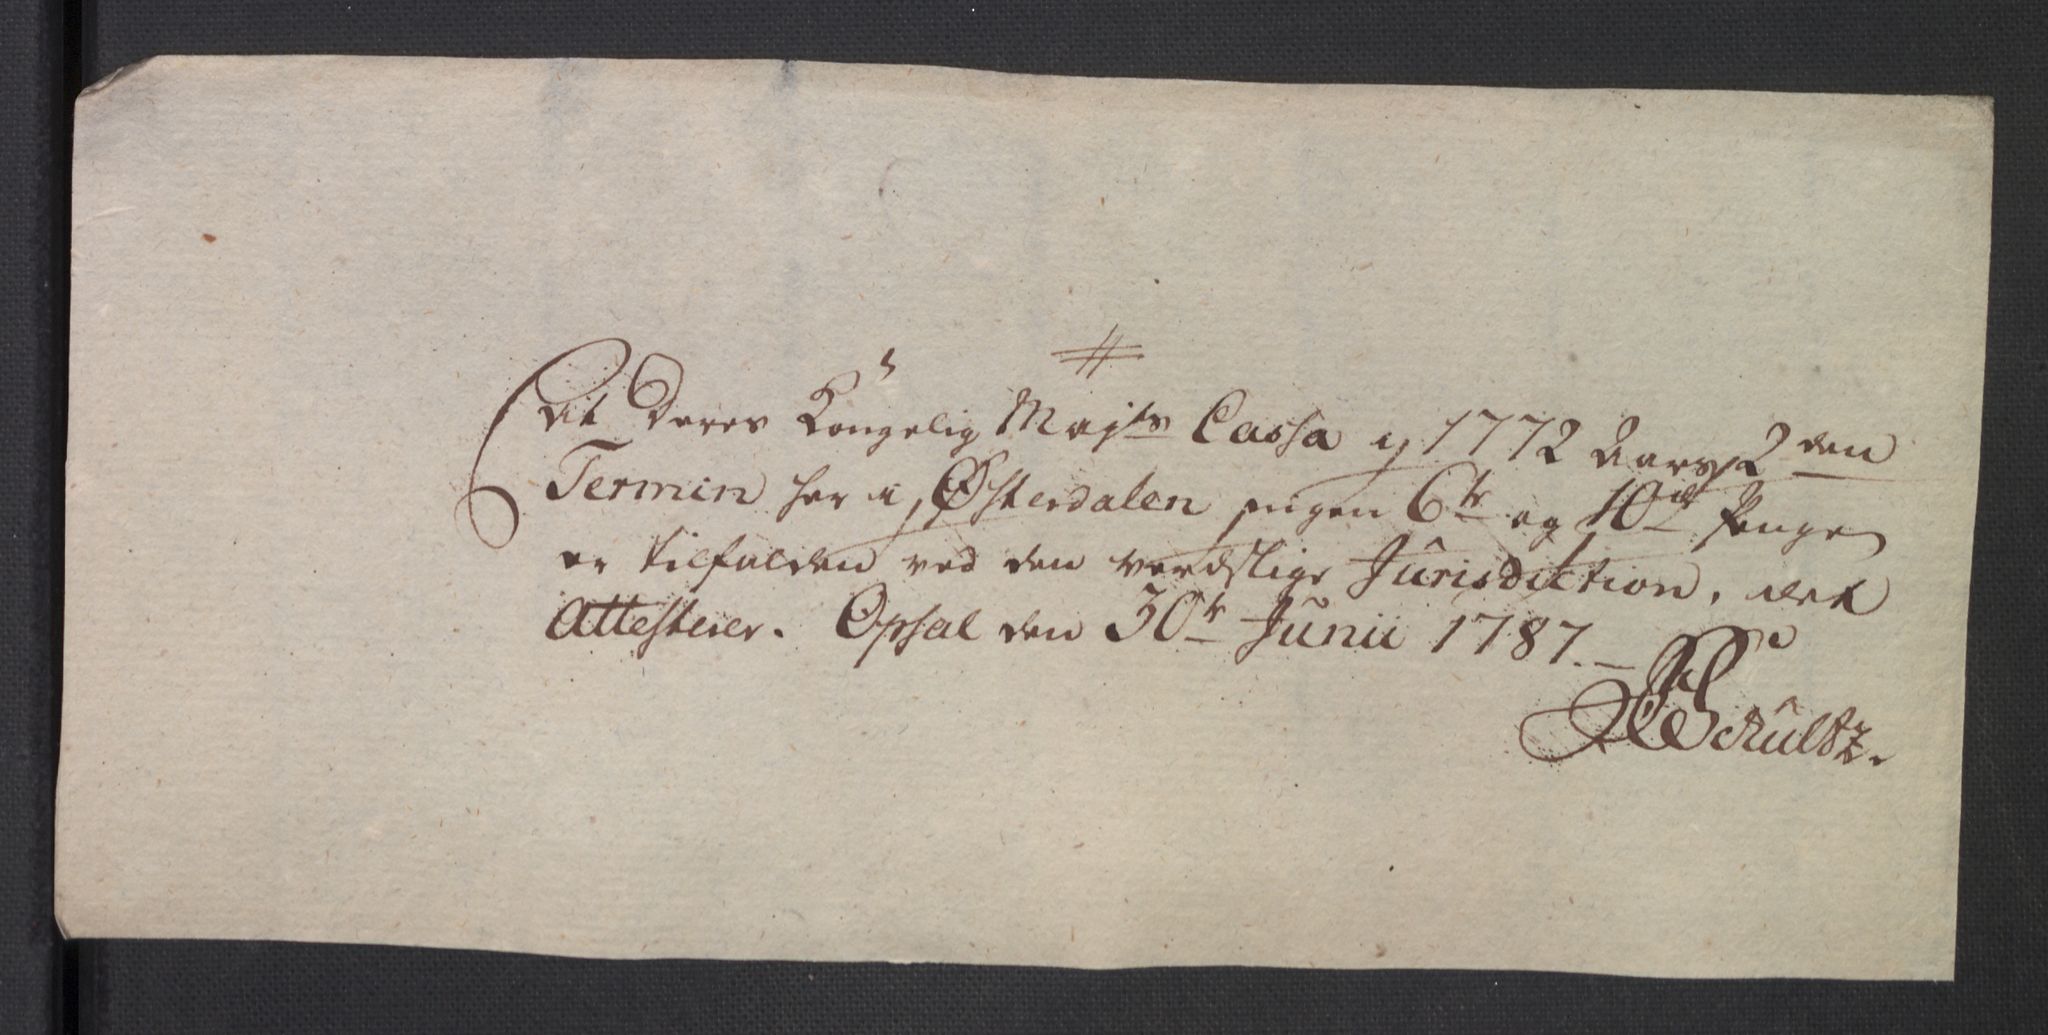 At Deres Kongelig Majts Cassa i 1772 Aars 2den
Termin her i Østerdalen ingen 6te og 10de Penge
er tilfalden ved den verdslige Jurisdiction, det
Attesterer. Opsal den 30te Junii 1787.
Schultz.